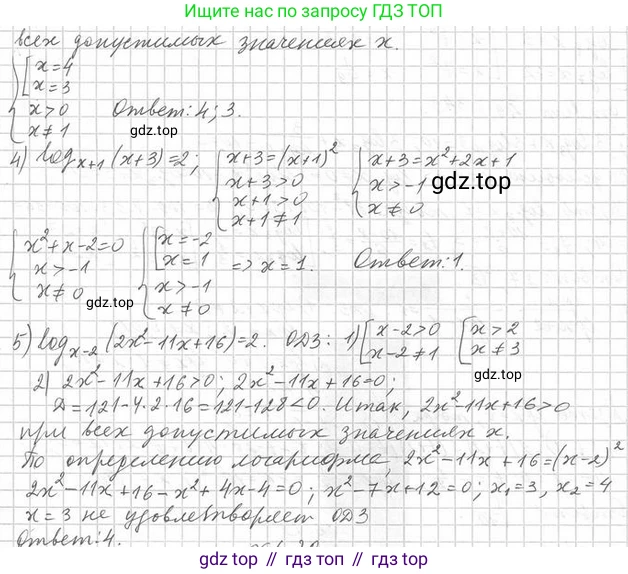 Ищите нас по запросу ГДЗ ТОП
всех допустимых значениях x.
{ [ x=4
x=3
x>0
x≠1
Ответ: 4; 3.
gdz.top
4) log_{x+1}(x+3)=2; { x+3=(x+1)^2
x+3>0
x+1>0
x+1≠1
{ x+3=x^2+2x+1
x>-1
x≠0
gdz.top
{ x^2+x-2=0
x>-1
x≠0
{ [ x=-2
x=1
x>-1
x≠0
=> x=1. Ответ: 1.
gdz.top
5) log_{x-2}(2x^2-11x+16)=2. ОДЗ: 1) [ x-2>0
x-2≠1
[ x>2
x≠3
2) 2x^2-11x+16>0; 2x^2-11x+16=0;
Д=121-4·2·16=121-128<0. Итак, 2x^2-11x+16>0
при всех допустимых значениях x.
По определению логарифма, 2x^2-11x+16=(x-2)^2
2x^2-11x+16-x^2+4x-4=0; x^2-7x+12=0; x_1=3, x_2=4
x=3 не удовлетворяет ОДЗ
Ответ: 4.
gdz.top
gdz top // гдз топ // gdz.top